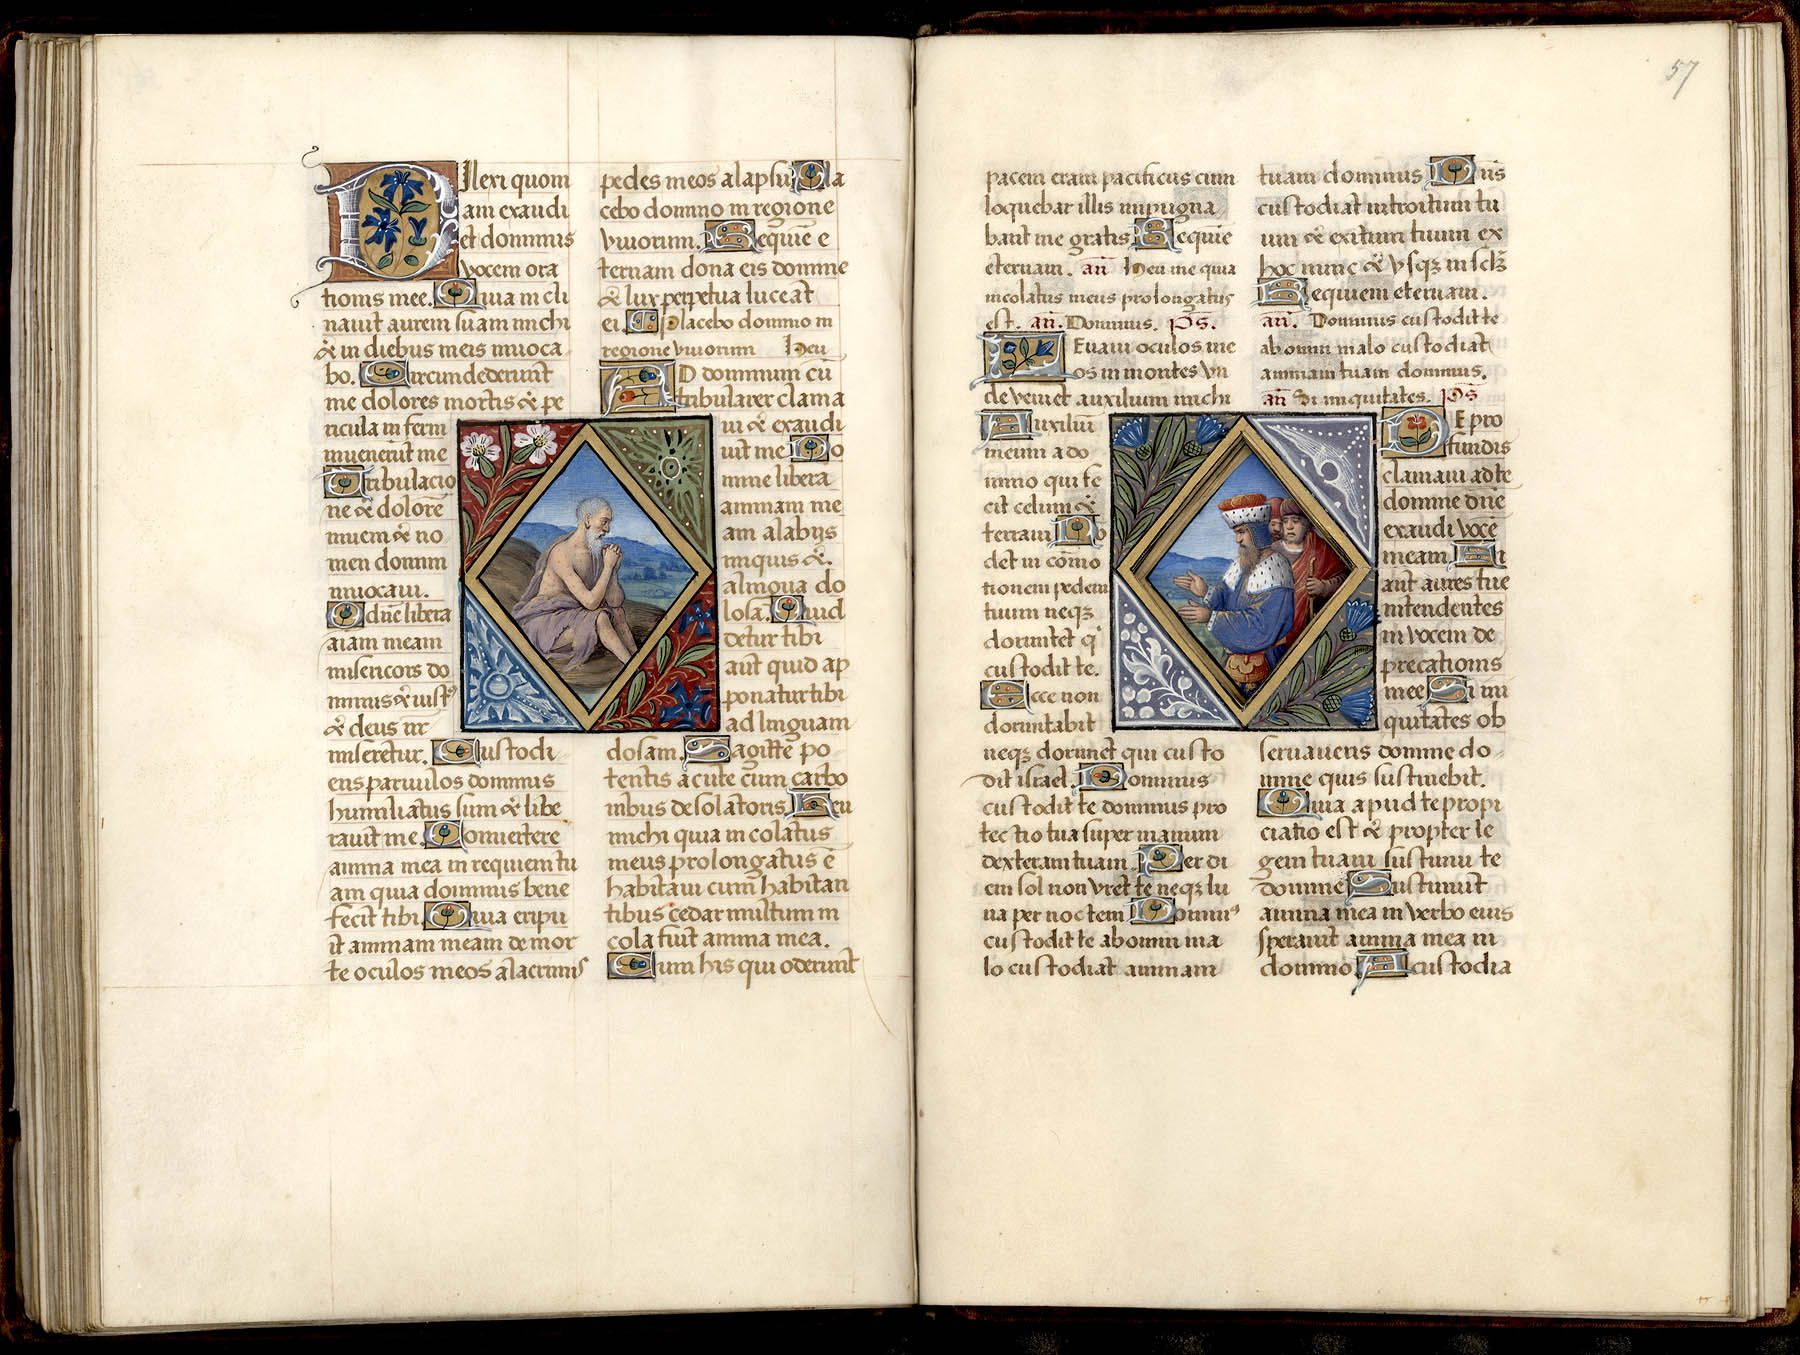 Dilexi quom
am exaudi
et dominus
vocem ora
tionis mee. Quia incli
navit aurem suam michi
& in diebus meis invoca
bo. Circumdederunt
me dolores mortis & pe
ricula inferni
invenerunt me
Tribulacio
nē & dolorē
inveni & no
men domini
invocavi.
O dn̄e libera
aīam meam
misericors do
minus & iustꝰ
& deus nr̄
miseretur. Custodi
ens parvulos dominus
humiliatus sum & libe
ravit me. Convertere
anima mea in requiem tu
am quia dominus bene
fecit tibi. Quia eripu
it animam meam de mor
te oculos meos a lacrimis
pedes meos a lapsu Pla
cebo domino in regione
vivorum. Requiē e
ternam dona eis domine
& lux perpetua luceat
ei. Placebo domino in
regione vivorum Heu
AD dominum cū
tribularer clama
vi & exaudi
vit me Do
mine libera
animam me
am a labijs
iniquis &.
a lingua do
losa. Quid
detur tibi
aut quid ap
ponatur tibi
ad linguam
dosam. Sagitte po
tentis acute cum carbo
nibus desolatoris Heu
michi quia incolatus
meus prolongatus ē
habitavi cum habitan
tibus cedar multum in
cola fuit anima mea.
Cum his qui oderunt
57
pacem eram pacificus cum
loquebar illis impugna
bant me gratis Requiē
eternam. an̄ Heu me quia
incolatus meus prolongatus
est. an̄. Dominus. Ps̄.
LEvavi oculos me
os in montes un
de veniet auxilium michi
Auxiliū
meum a do
mino qui fe
cit celum &
terram No
det in cōmo
tionem pedem
tuum neqꝫ
dormitet q
custodit te.
Ecce non
dormitabit
neqꝫ dormiet qui custo
dit israel. Dominus
custodit te dominus pro
tectio tua super manum
dexteram tuam. Per di
em sol non vret te neqꝫ lu
na per noctem Dominꝰ
custodit te ab omni ma
lo custodiat animam
tuam dominus Dn̄s
custodiat introitum tu
um & exitum tuum ex
hoc nunc & vsqꝫ in sclꝫ
Requiem eternam.
an̄. Dominus custodit te
ab omni malo custodiat
animam tuam dominus.
an̄ Si iniquitates. Ps̄
DE pro
fundis
clamavi ad te
domine dn̄e
exaudi vocē
meam Fi
ant aures tue
intendentes
in vocem de
precationis
mee Si ini
quitates ob
servaveris domine do
mine quis sustinebit.
Quia apud te propi
ciatio est & propter le
gem tuam sustinui te
domine Sustinuit
anima mea in verbo eius
speravit anima mea in
domino. A custodia